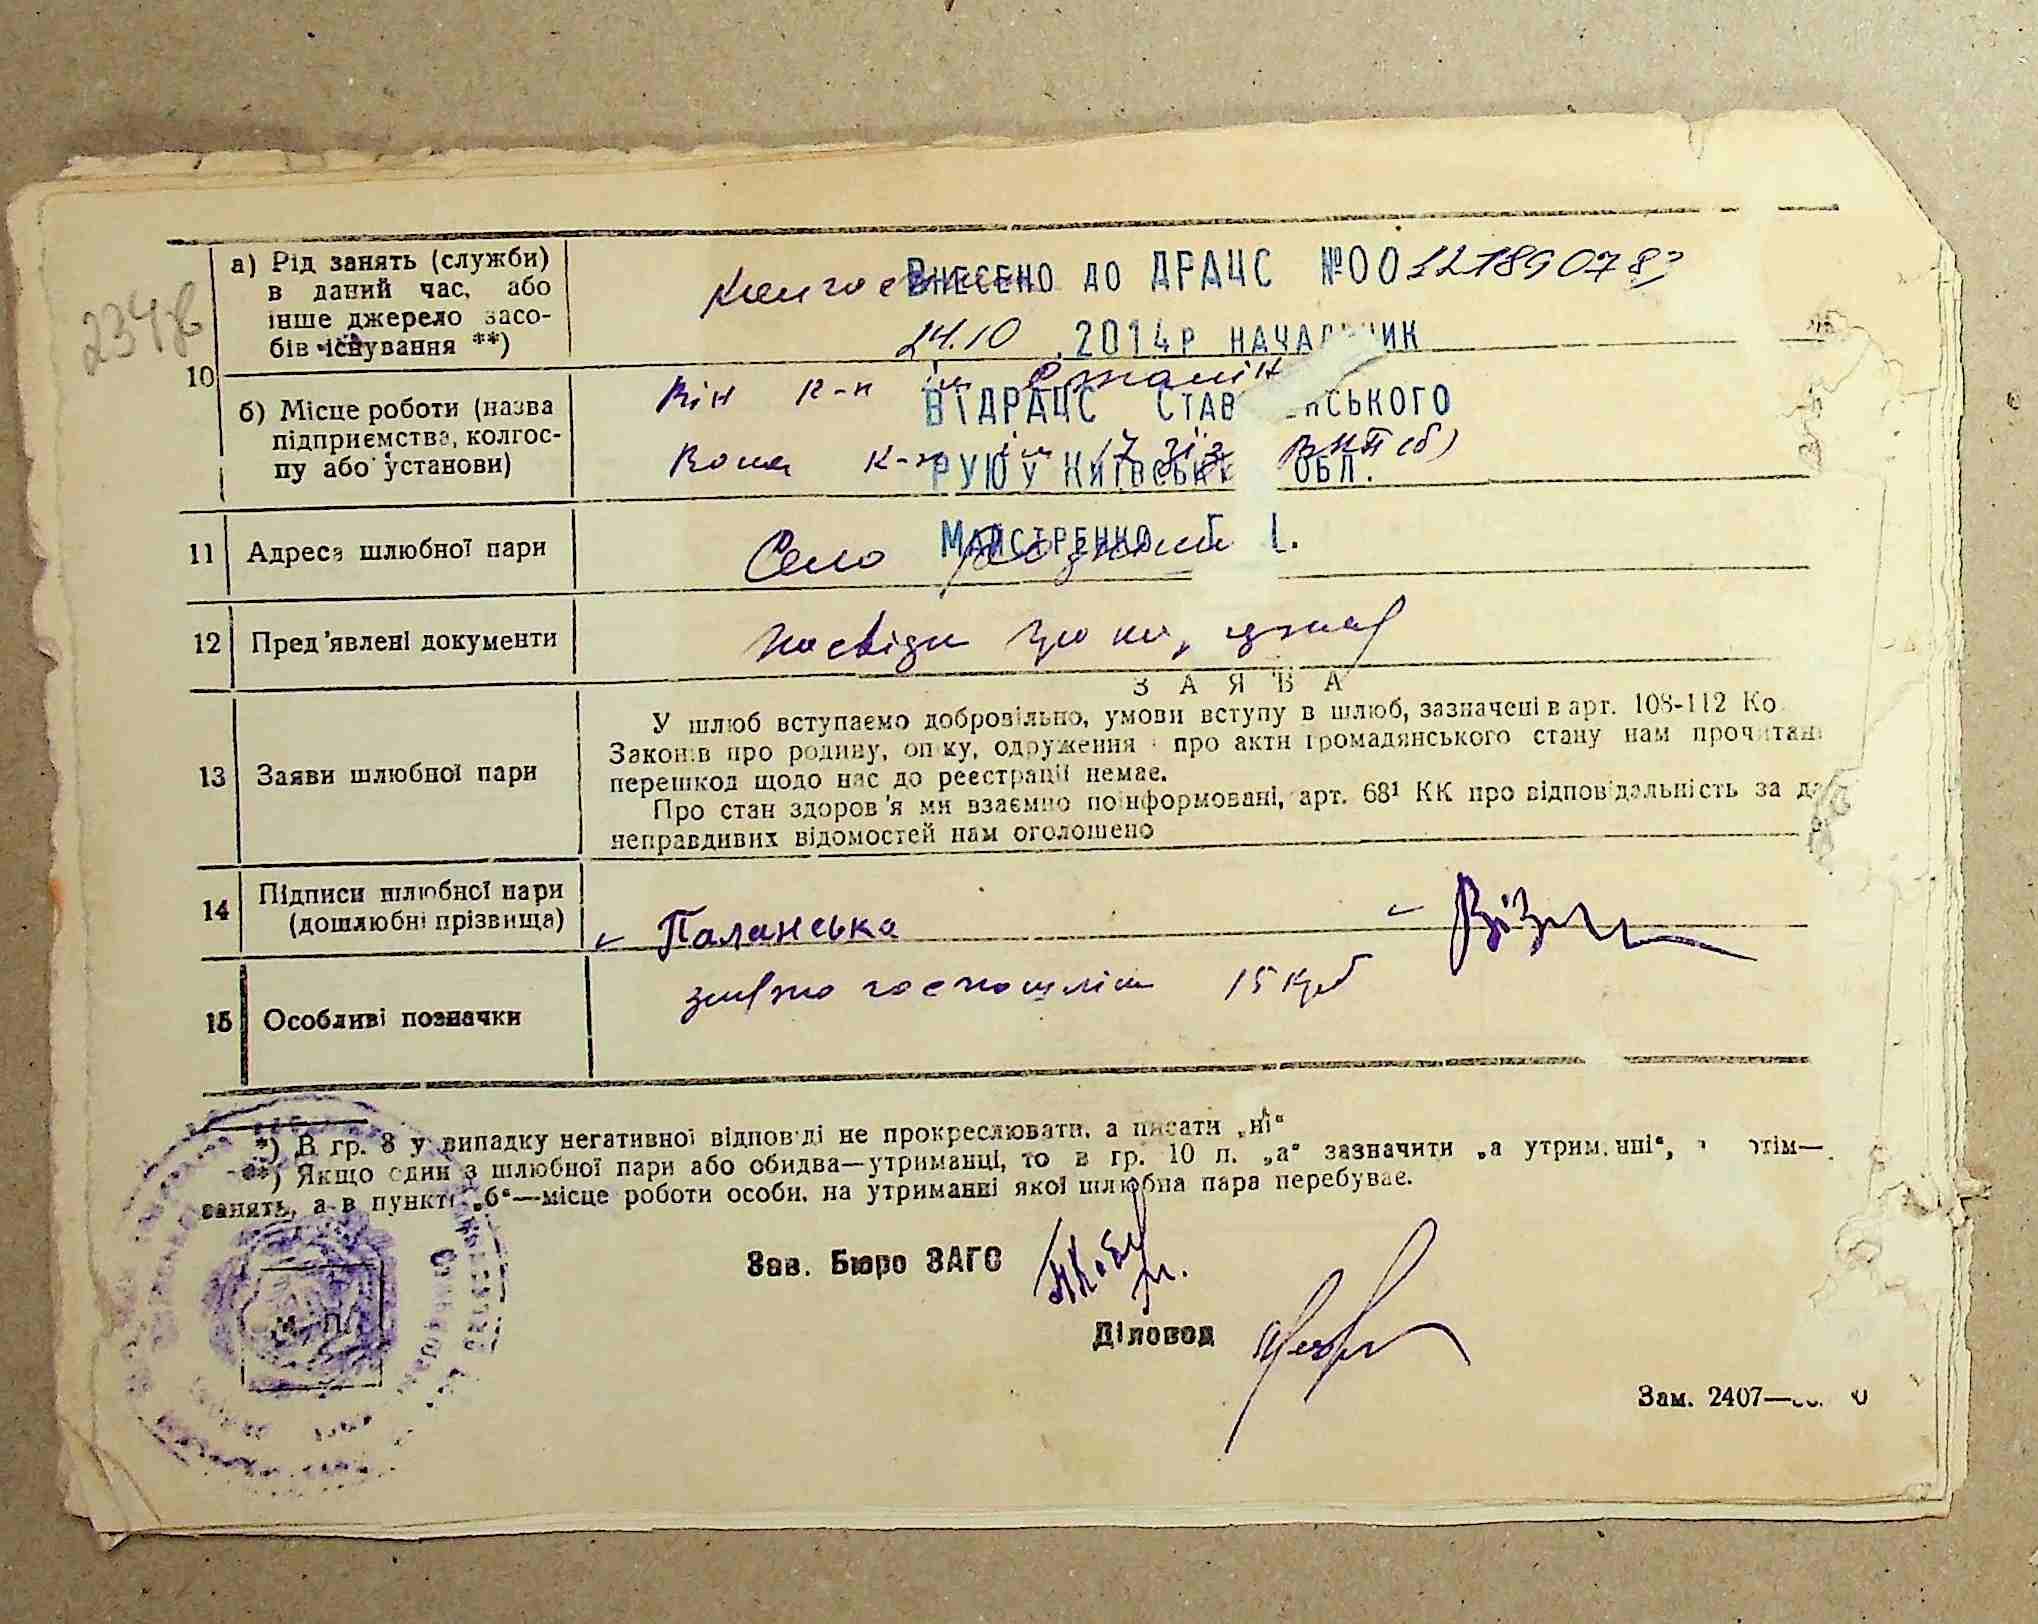 234
10
а) Рід занять (служби)
в даний час, або
інше джерело засо-
бів існування **)
Внесено до ДРАЦС №00
24.10 .2014р начальник
б) Місце роботи (назва
підприємства, колгос-
пу або установи)
Він к-п ім
ВІДРАЦС Ставищенського
Вона к-п ім 17 ВКП(б)
РУЮ у Київській обл.
11 Адреса шлюбної пари
Село
Майстренко Г І.
12 Пред'явлені документи
13 Заяви шлюбної пари
ЗАЯВА
У шлюб вступаємо добровільно, умови вступу в шлюб, зазначені в арт. 108-112 Ко
Законів про родину, опіку, одруження і про акти громадянського стану нам прочитані
перешкод щодо нас до реєстрації немає.
Про стан здоров'я ми взаємно поінформовані, арт. 68¹ КК про відповідальність за да
неправдивих відомостей нам оголошено
14 Підписи шлюбної пари
(дошлюбні прізвища)
Паланська
15 Особливі позначки
15 крб
*) В гр. 8 у випадку негативної відповіді не прокреслювати, а писати „ні“
**) Якщо один з шлюбної пари або обидва—утриманці, то в гр. 10 п. „а“ зазначити „а утриманні“,
занять, а в пункті „б“—місце роботи особи, на утриманні якої шлюбна пара перебуває.
М. П.
Зав. Бюро ЗАГС
Діловод
Зам. 2407—